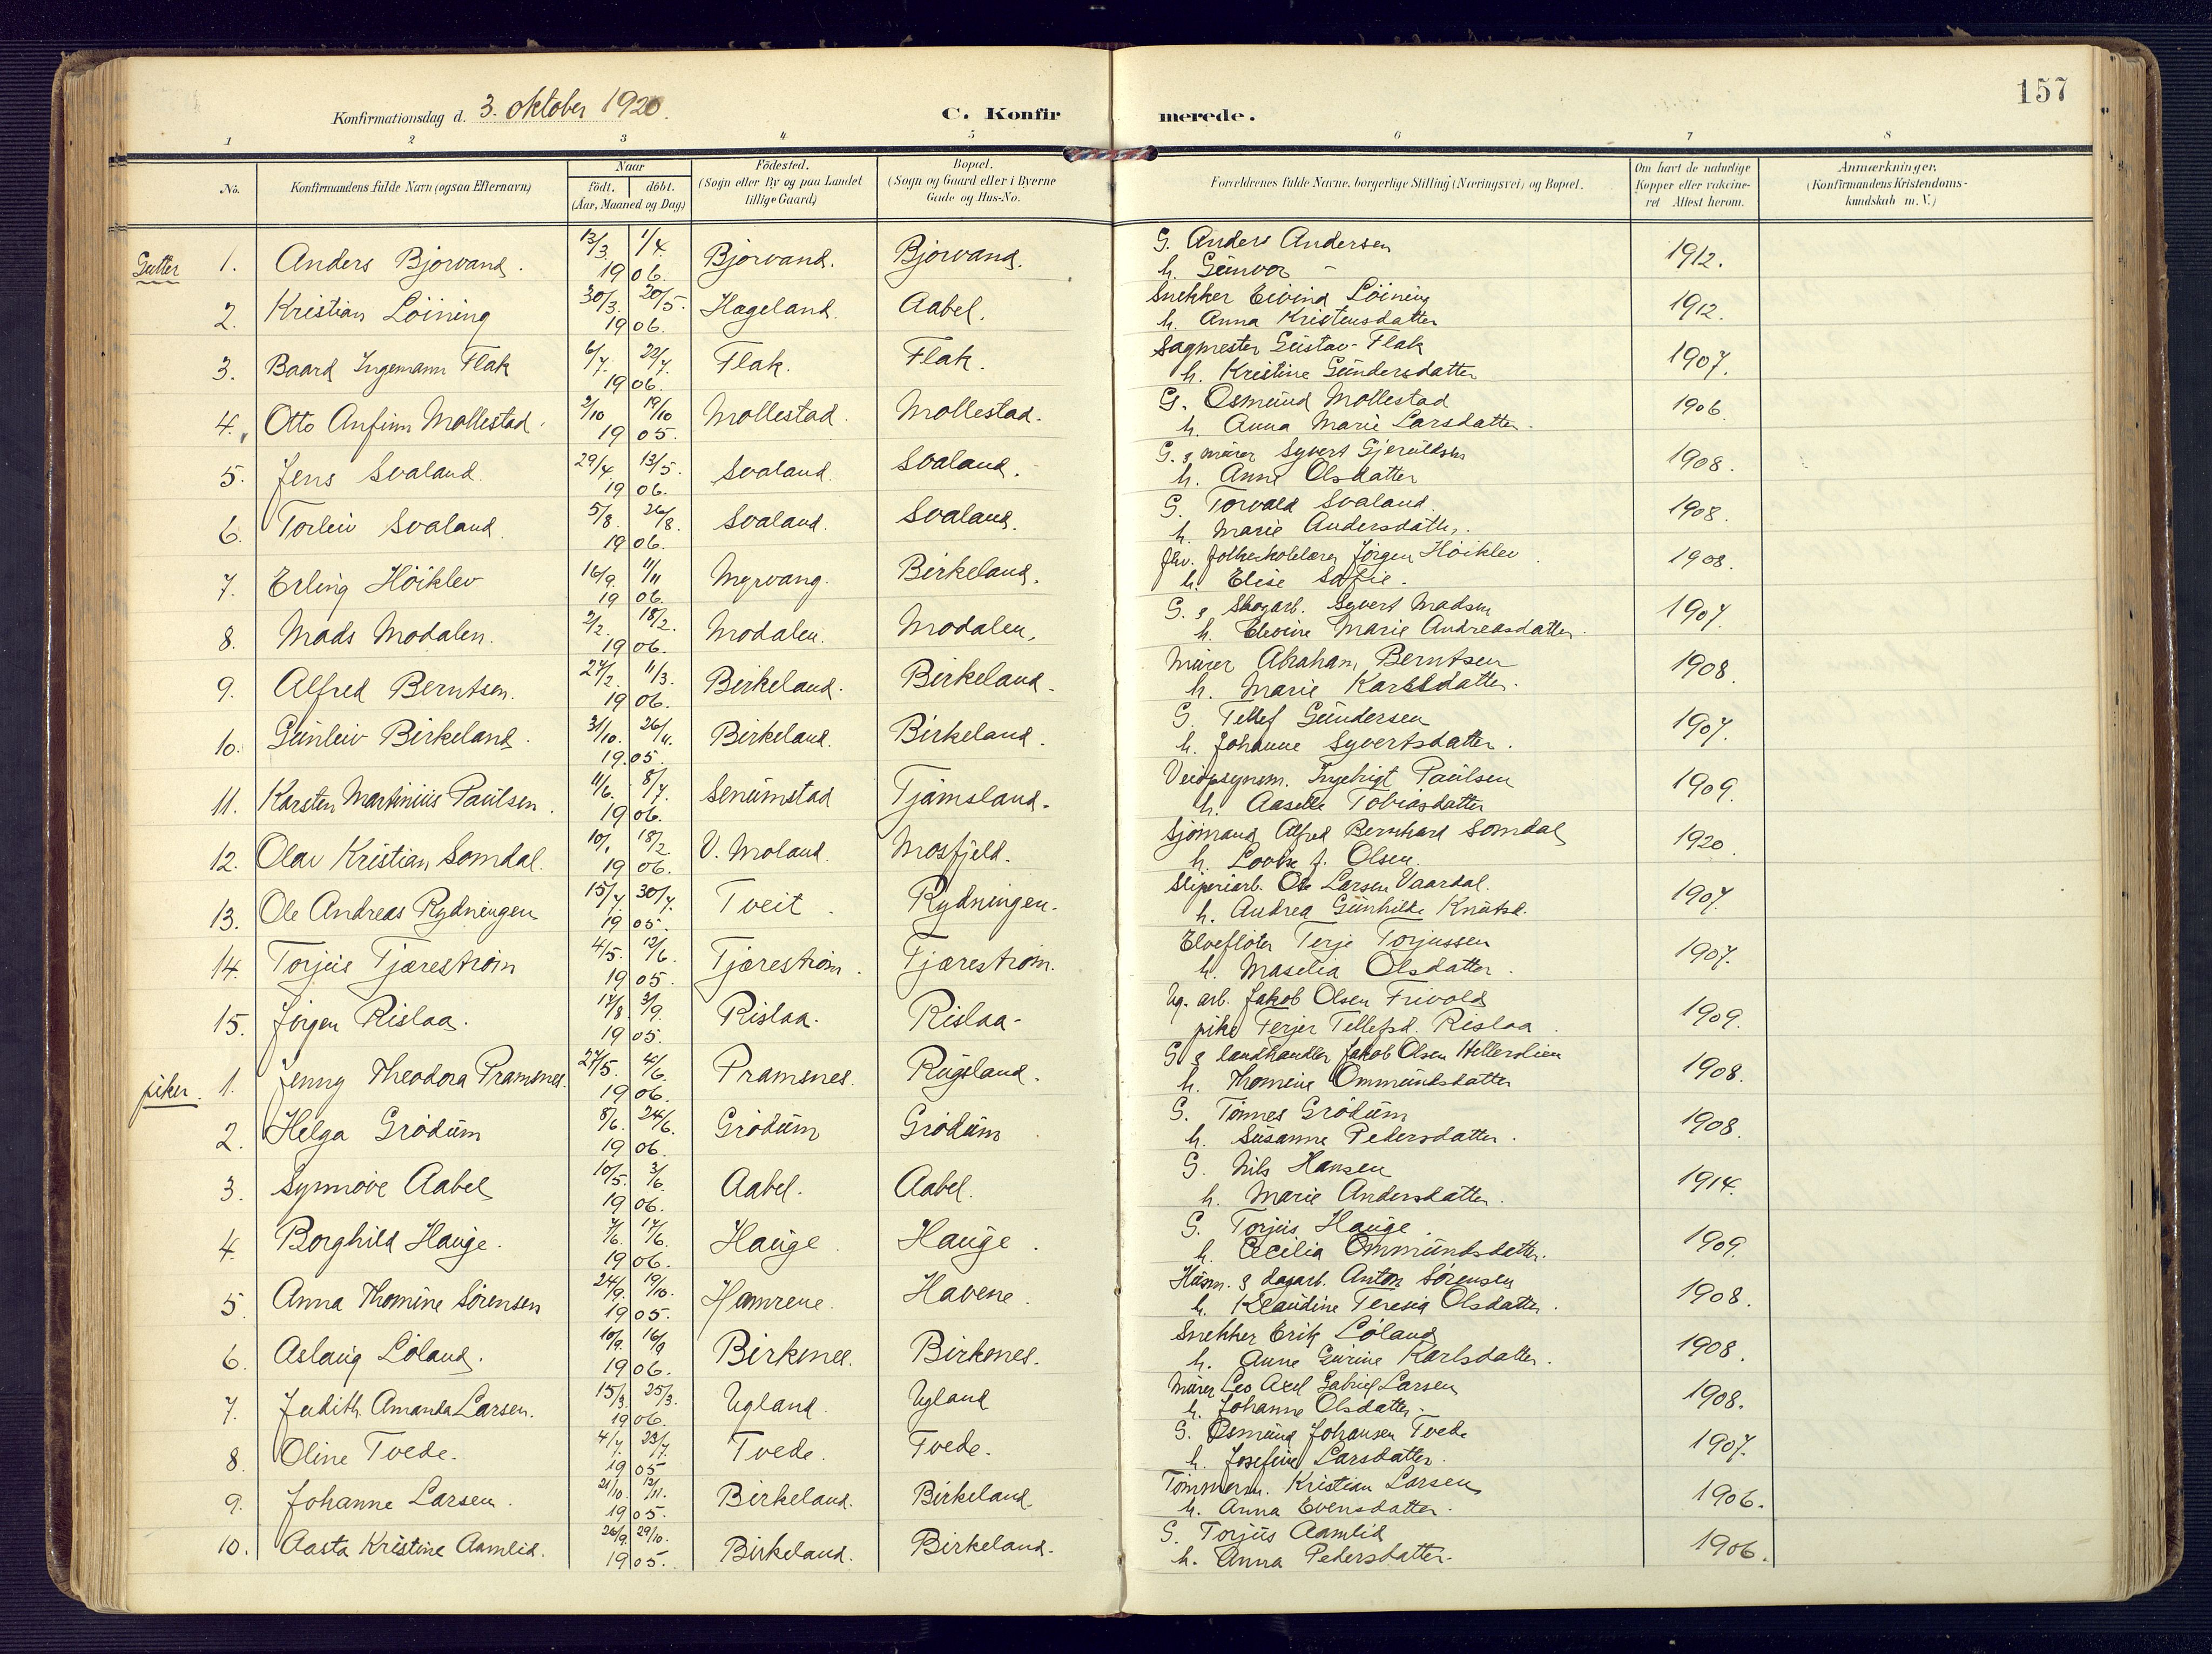 157
Konfirmationsdag d. 3. oktober 1920.
C. Konfirmerede.
1 2 3 4 5 6 7 8
No. Konfirmandens fulde Navn (ogsaa Efternavn) Naar födt. döbt. (Aar, Maaned og Dag) Födested. (Sogn eller By og paa Landet tillige Gaard) Bopæl. (Sogn og Gaard eller i Byerne Gade og Hus-No. Forældrenes fulde Navne, borgerlige Stilling (Næringsvei) og Bopæl. Om havt de naturlige Kopper eller vakcineret Attest herom. Anmærkninger. (Konfirmandens Kristendomskundskab m. V.)
Gutter 1. Anders Bjorvand. 13/3. 1/4. 1906. Bjorvand. Bjorvand. G. Anders Andersen 1912.
h. Gunvor –
2. Kristian Löining 30/3. 20/5. 1906. Hægeland. Aabel. Snekker Eivind Löining 1912.
h. Anna Kristensdatter
3. Baard Ingemann Flak 6/7. 22/7. 1906. Flak. Flak. Sagmester Gustav Flak 1907.
h. Kristine Gundersdatter
4. Otto Anfinn Mollestad. 2/10 19/10 1905. Mollestad. Mollestad. G. Osmund Mollestad 1906.
h. Anna Marie Larsdatter.
5. Jens Svaland. 29/4. 13/5. 1906. Svaland. Svaland. G. & murer Syvert Gjeruldsen 1908.
h. Anne Olsdatter
6. Torleiv Svaland. 5/8. 26/8. 1906. Svaland. Svaland. G. Torvald Svaland. 1908.
h. Marie Andersdatter.
7. Erling Höiklev 16/9. 11/11 1906. Myrvang. Birkeland. fhv. folkeskolelærer Jörgen Höiklev 1908.
h. Elise Sofie.
8. Mads Modalen. 2/2. 18/2. 1906. Modalen. Modalen. G. & skogarb. Syvert Madsen 1907.
h. Elevine Marie Andreasdatter.
9. Alfred Berntsen. 27/2. 11/3. 1906. Birkeland. Birkeland. Murer Abraham Berntsen 1908.
h. Marie Karlsdatter.
10. Gunleiv Birkeland. 31/10. 26/11. 1905. Birkeland. Birkeland. G. Tellef Gundersen 1907.
h. Johanne Syvertsdatter.
11. Karsten Martinius Paulsen. 11/6. 8/7. 1906. Senumstad Tjamsland. Veiopsynsm. Ingebrigt Paulsen 1909.
h. Aaselle Tobiasdatter
12. Olav Kristian Somdal. 10/1 18/2 1906. V. Moland. Mosfjeld. Sjömand Alfred Bernhard Somdal 1920.
h. Lovise J. Olsen.
13. Ole Andreas Rydningen 15/7. 30/7. 1905. Tveit. Rydningen. Sliperiarb. Ole Larsen Vaardal. 1907.
h. Andrea Gunhilde Knutsd.
14. Torjus Tjærestrøm 4/5. 12/6. 1905. Tjærestrøm. Tjærestrøm. Elveflöter Terje Torjussen 1907.
h. Maselia Olsdatter.
15. Jörgen Rislaa. 17/8. 3/9. 1905. Rislaa. Rislaa. Ug. arb. Jakob Olsen Frivold 1909.
pike Terjer Tellefsd. Rislaa.
piker. 1. Jenny Theodora Pramsnes. 27/5. 4/6. 1906. Pramsnes. Rugsland. G & landhandler Jakob Olsen Hellerslien 1908.
h. Thomine Ommundsdatter
2. Helga Grödum 8/6. 24/6. 1906. Grödum Grödum. G. Tönnes Grödum 1908.
h. Susanne Pedersdatter.
3. Synnöve Aabel 10/5. 3/6. 1906. Aabel. Aabel. G. Nils Hansen 1914.
h. Marie Andersdatter.
4. Borghild Hauge. 7/6. 17/6. 1906. Hauge. Hauge. G. Torjus Hauge. 1909.
h. Cecilia Ommundsdatter.
5. Anna Thomine Sörensen 24/9. 19/10. 1905. Hamrene. Havene. Husm. & dagarb. Anton Sörensen 1908.
h. Klaudine Teresia Olsdatter.
6. Aslaug Löland. 10/9. 16/9 1906. Birkenes. Birkenes. Snekker Erik Löland 1908.
h. Anne Gurine Karlsdatter.
7. Judith Amanda Larsen. 15/3. 25/3. 1906. Ugland. Ugland Murer Leo Axel Gabriel Larsen 1908.
h. Johanne Olsdatter.
8. Oline Tvede. 4/7. 23/7. 1905 Tvede. Tvede. G. Osmund Johansen Tvede 1907.
h. Josefine Larsdatter.
9. Johanne Larsen. 21/10. 12/11. 1905. Birkeland. Birkeland. Tömmerm. Kristian Larsen 1906.
h. Anna Evensdatter.
10. Aasta Kristine Aamlid. 26/9. 29/10. 1905. Birkeland. Birkeland. G. Torjus Aamlid 1906.
h. Anna Pedersdatter.